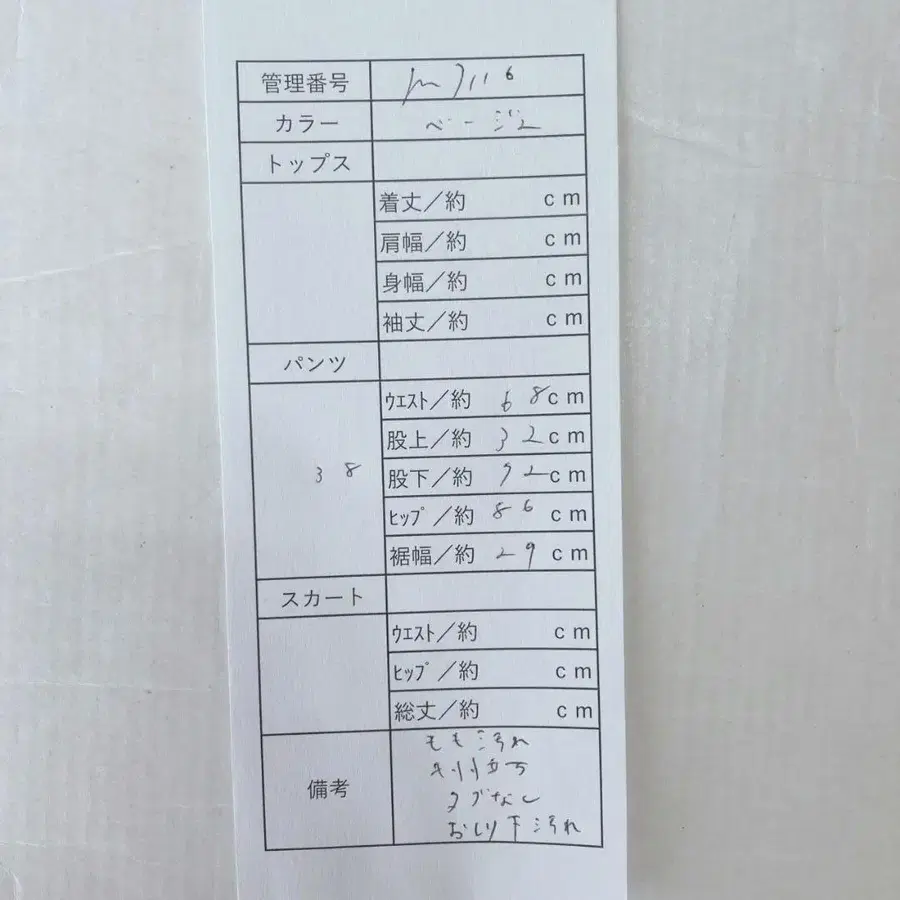 管理番号 m7116
カラー ベージュ
トップス
着丈／約 cm
肩幅／約 cm
身幅／約 cm
袖丈／約 cm
パンツ
38
ウエスト／約 68cm
股上／約 32cm
股下／約 92cm
ヒップ／約 86 cm
裾幅／約 29 cm
スカート
ウエスト／約 cm
ヒップ／約 cm
総丈／約 cm
備考
もも汚れ
タグなし
おしり下汚れ